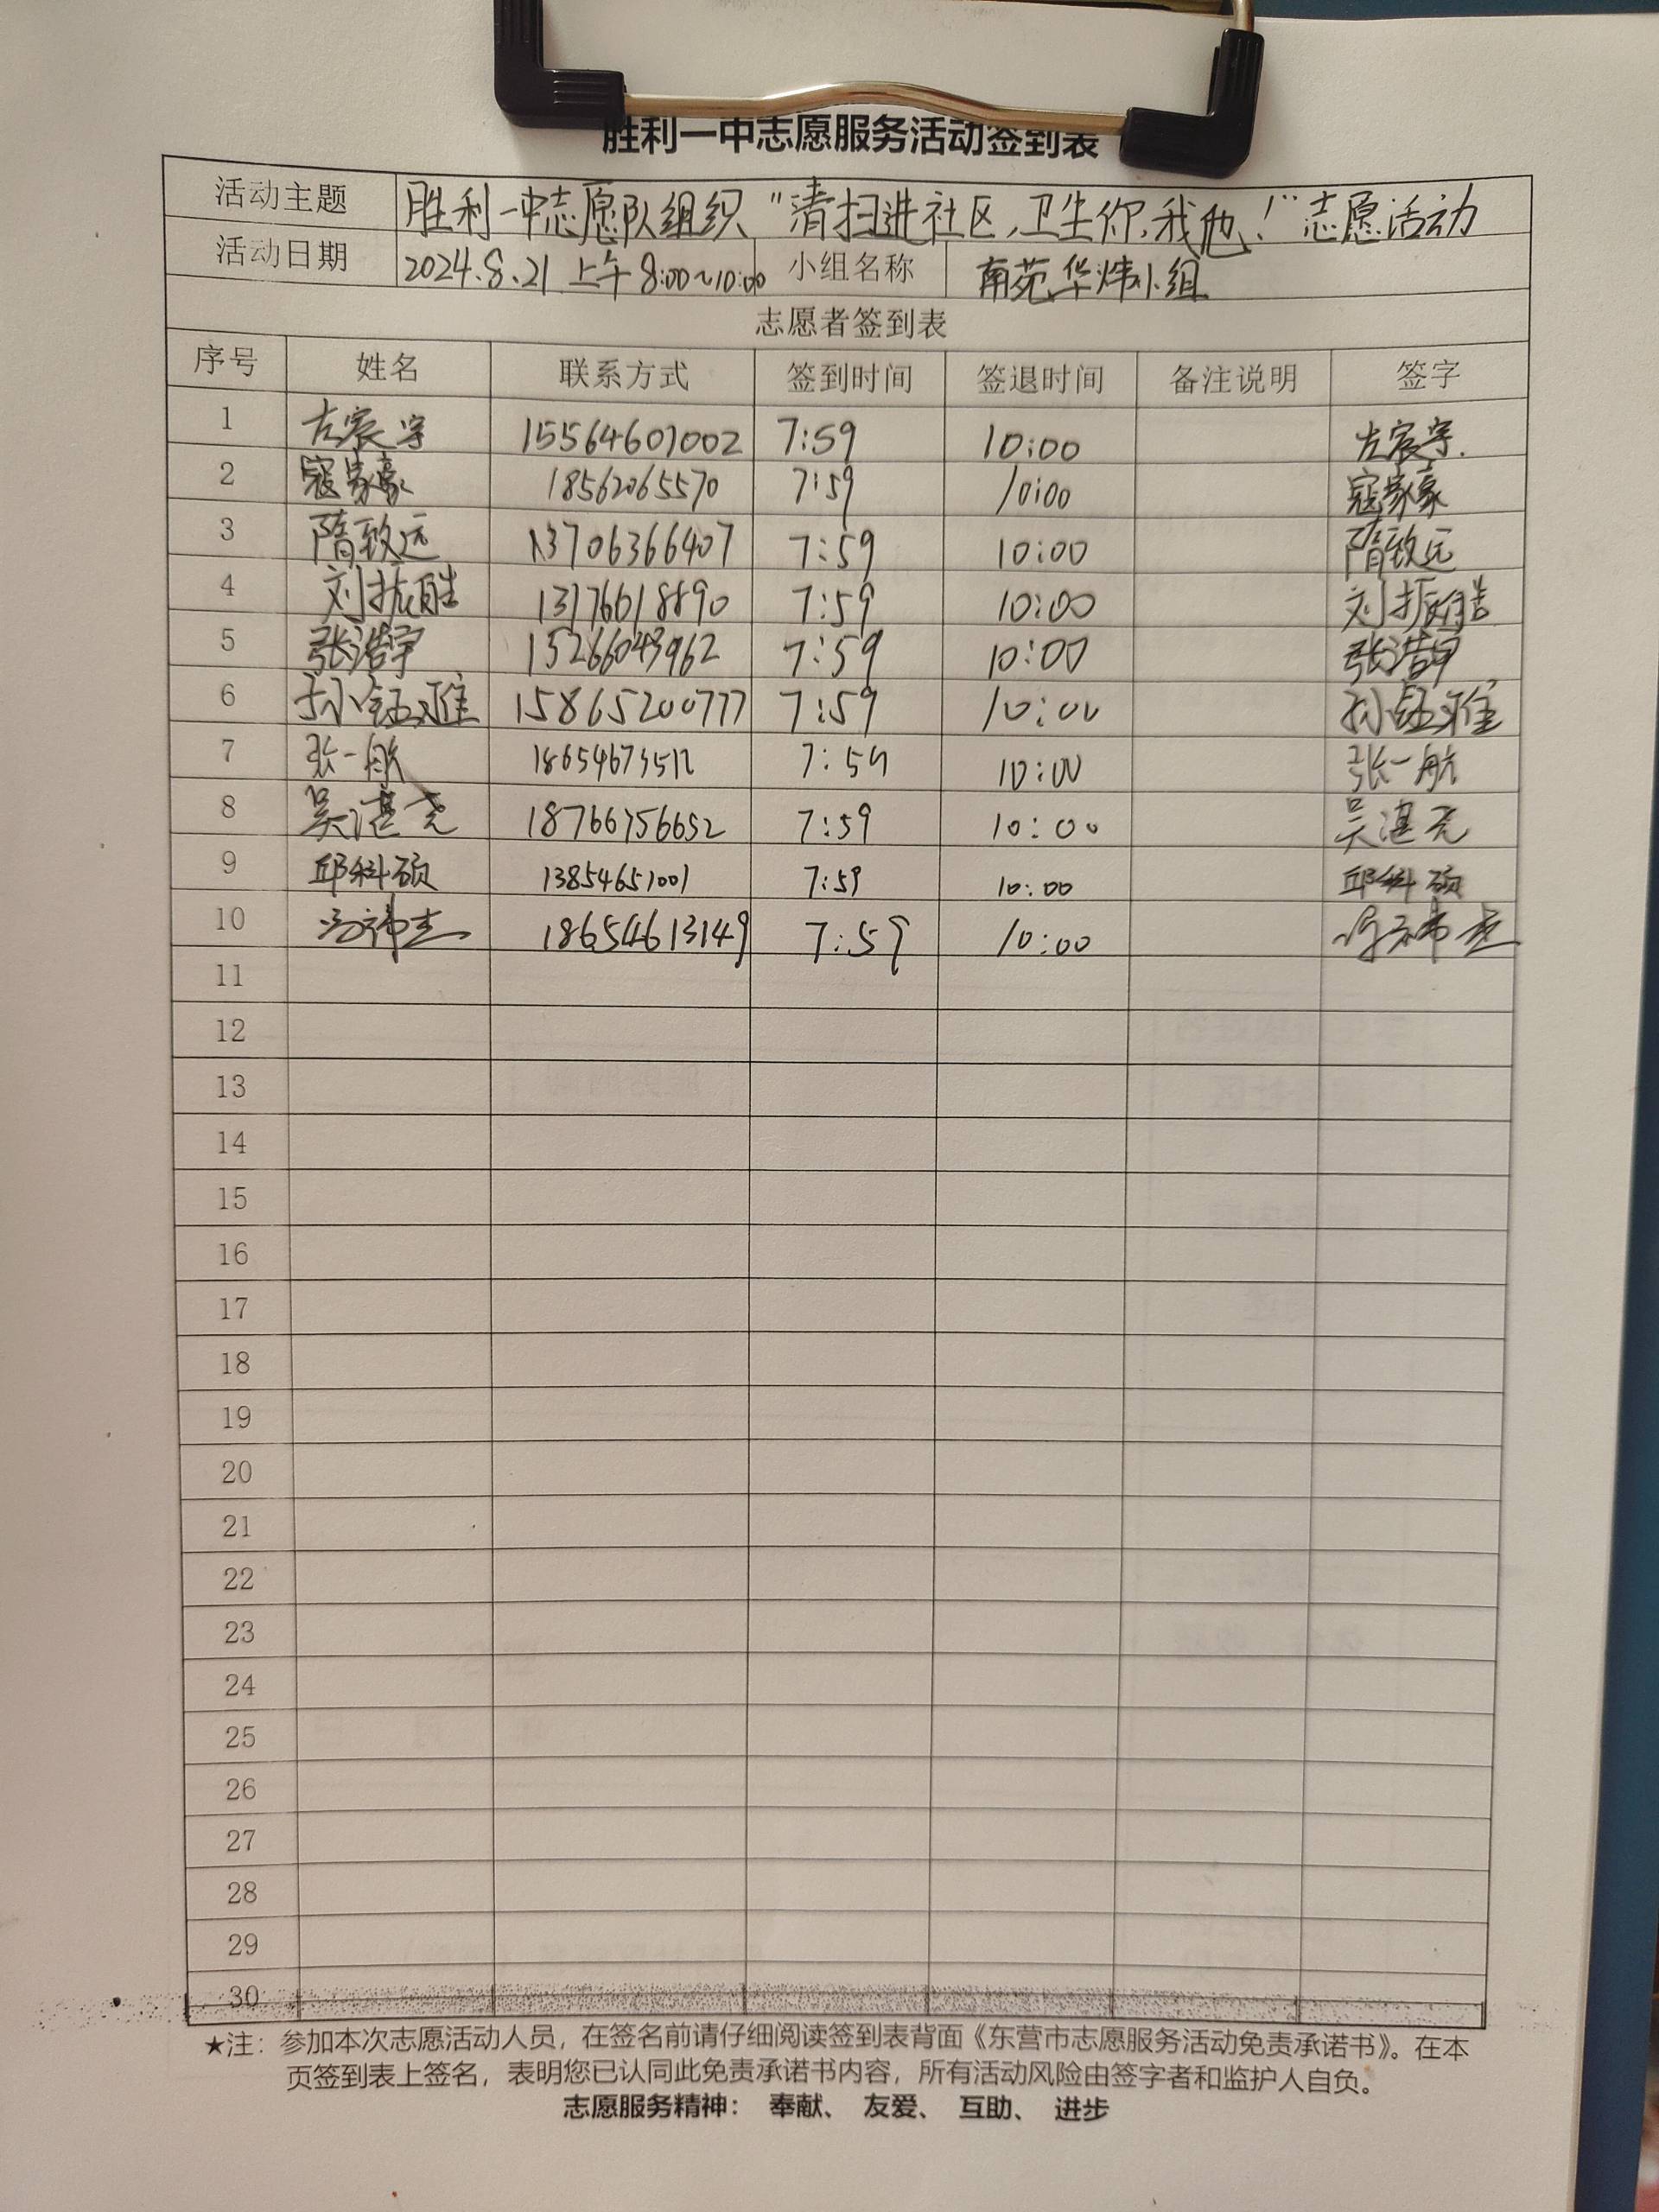 胜利一中志愿服务活动签到表
活动主题 胜利一中志愿队组织"清扫进社区,卫生你,我,他!"志愿活动
活动日期 2024.8.21 上午8:00~10:00 小组名称 南苑华炜小组
志愿者签到表
序号 姓名 联系方式 签到时间 签退时间 备注说明 签字
1 左宸宇 15564607002 7:59 10:00 左宸宇
2 寇家豪 18562065570 7:59 10:00 寇家豪
3 隋致远 13706366407 7:59 10:00 隋致远
4 刘振胜 13176618890 7:59 10:00 刘振胜
5 张浩宇 7:59 10:00 张浩宇
6 孙钰雅 15865200777 7:59 10:00 孙钰雅
7 张一航 7:59 10:00 张一航
8 吴湛尧 18766756652 7:59 10:00 吴湛尧
9 邱科硕 13854651001 7:59 10:00 邱科硕
10 冯祎杰 18654613149 7:59 10:00 冯祎杰
11
12
13
14
15
16
17
18
19
20
21
22
23
24
25
26
27
28
29
30
★注：参加本次志愿活动人员，在签名前请仔细阅读签到表背面《东营市志愿服务活动免责承诺书》。在本
页签到表上签名，表明您已认同此免责承诺书内容，所有活动风险由签字者和监护人自负。
志愿服务精神： 奉献、 友爱、 互助、 进步